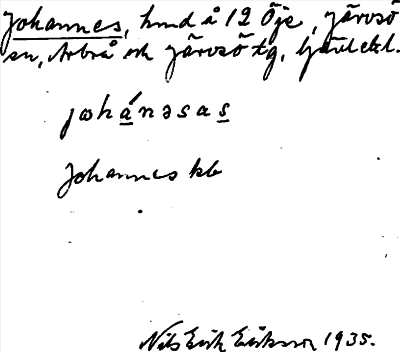 Johannes, hmd å 12 Öje, Järvsö
sn, Arbrå och Järvsö tg, Gävlebl.
johánəsas
Johannes kb
Nils Erik Eriksson 1935.